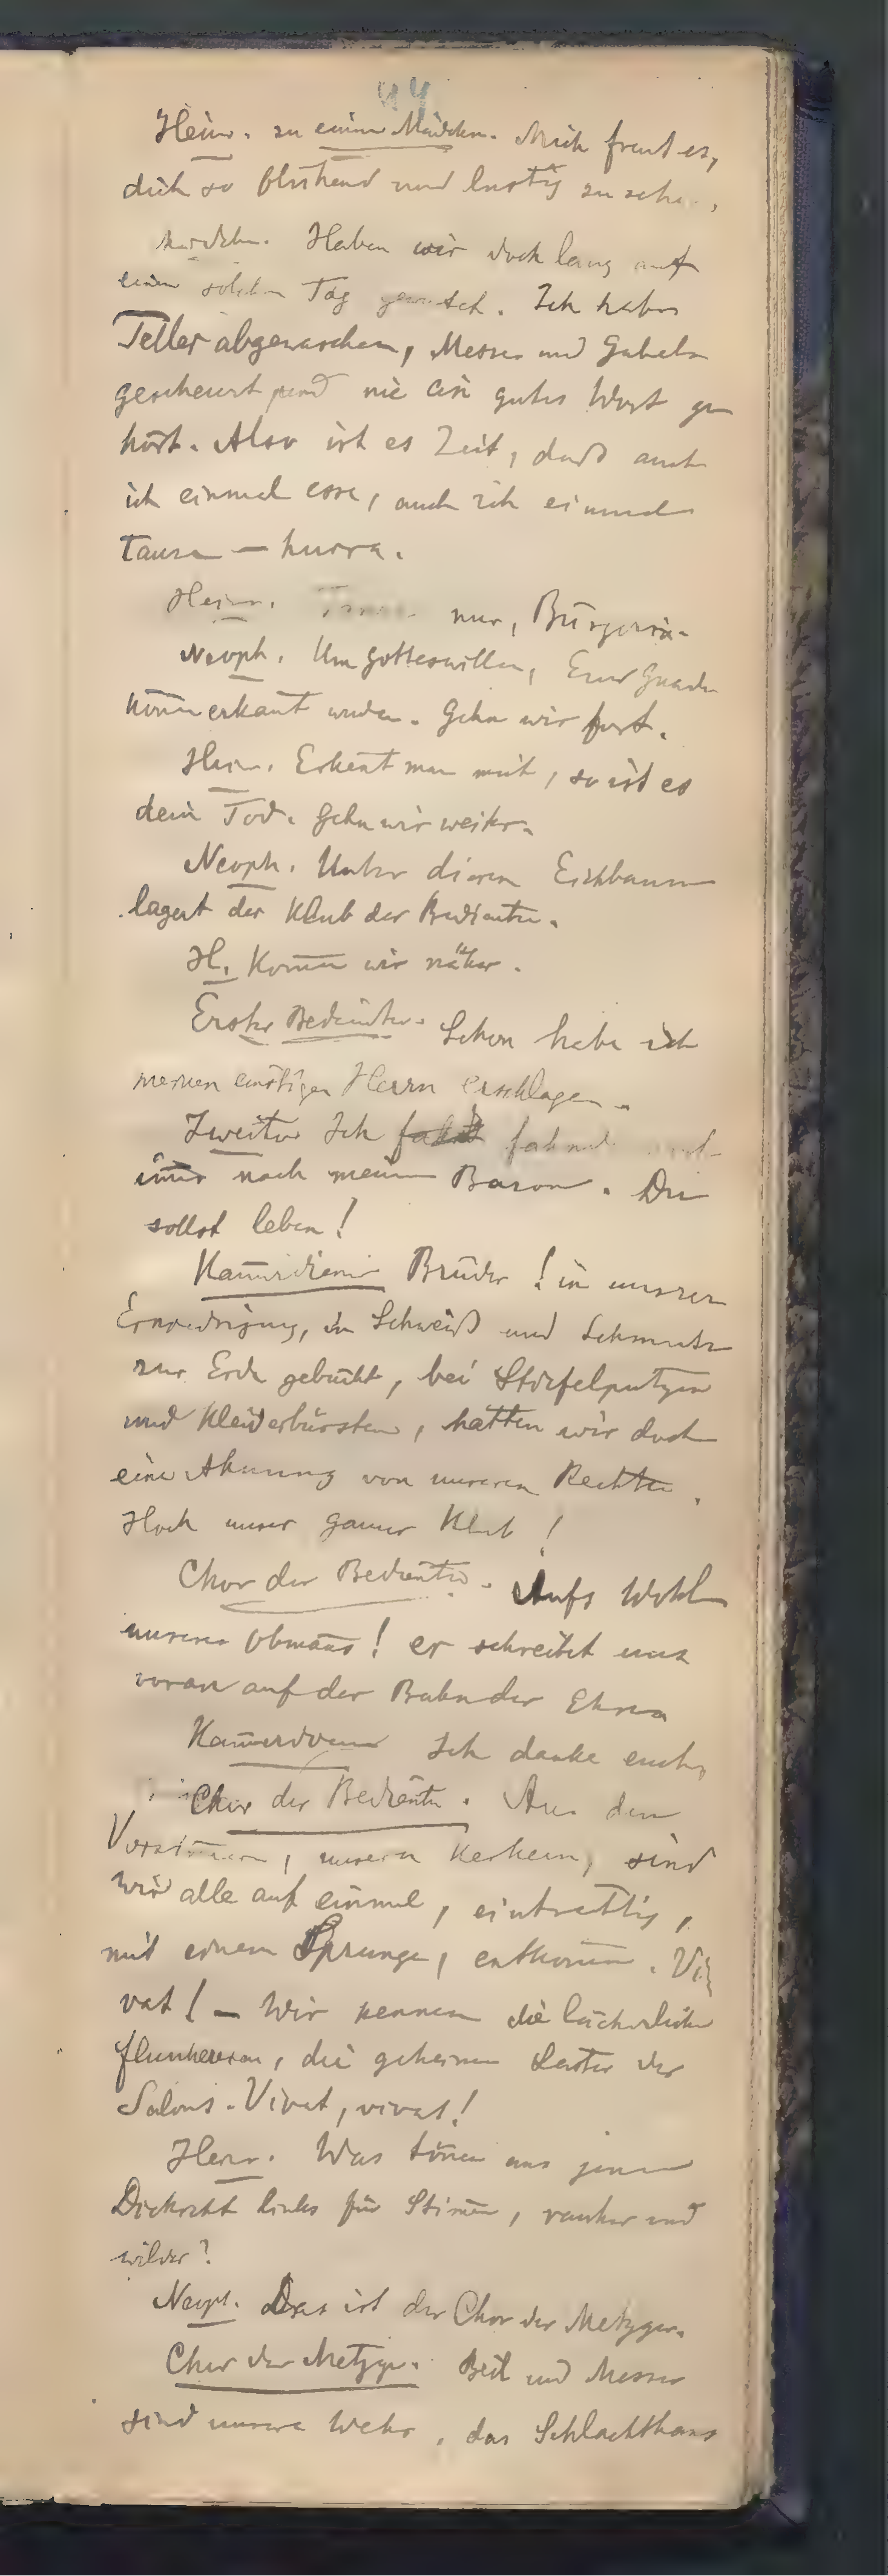 44
Heinr. zu einem Mädchen. Mich freut es,
dich so blühend und lustig zu sehen.
Mädchen. Haben wir doch lang auf
einen solchen Tag gewartet. Ich habe
Teller abgewaschen, Messer und Gabeln
gescheuert und nie ein gutes Wort ge
hört. Also ist es Zeit, daß auch
ich einmal esse, auch ich einmal
tanze — hurra.
Heinr. nur, Bürgerin.
Neoph. Um Gotteswillen, Euer Gnaden
könen erkant werden. Gehn wir fort.
Heinr. Erkent man mich, so ist es
dein Tod. Gehn wir weiter.
Neoph. Unter diesem Eichbaum
lagert der Klub der Bedienten.
H. Komen wir näher.
Erster Bedienter. Schon habe ich
meinen einstigen Herrn erschlagen.
Zweiter Ich fahnde
imer nach meinem Baron. Du
sollst leben!
Kamerdiener Brüder! in unserer
Erniedrigung, in Schweiß und Schmutz
zur Erde gebückt, bei Stiefelputzen
und Kleiderbürsten, hatten wir doch
eine Ahnung von unseren Rechten.
Hoch unser ganzer Klub!
Chor der Bedienten. Aufs Wohl
unseres Obmans! er schreitet uns
voran auf der Bahn der Ehren
Kamerdiener Ich danke euch,
Chor der Bedienten. Aus den
Vorzimern, unsern Kerkern, sind
wir alle auf einmal, einträchtig,
mit einem Sprunge, entkomen. Vi
vat! — Wir kennen die lächerlichen
Flunkereien, die geheimen Laster der
Salons. Vivat, vivat!
Heinr. Was tönen aus jenem
Dickicht links für Stimen, rauher und
wilder?
Neoph. Das ist der Chor der Metzger.
Chor der Metzger. Beil und Messer
sind unsere Wehr, das Schlachthaus